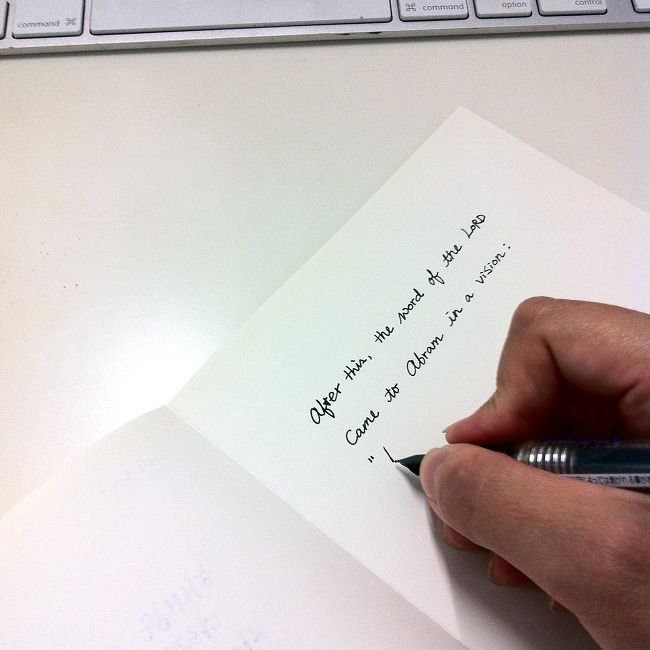 command ⌘
⌘ command
option
control
After this, the word of the LORD
Came to Abram in a vision:
"